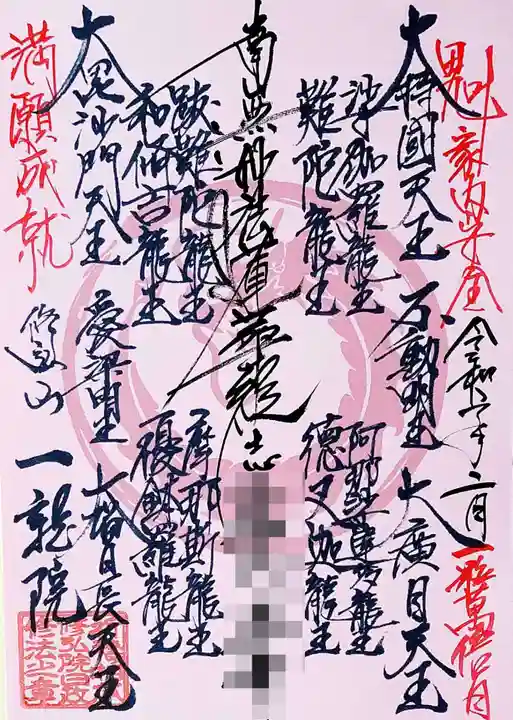 家内安全
令和六年二月
大持國天王
不動明王
大廣目天王
沙伽羅龍王
阿那婆達多龍王
難陀龍王
德叉迦龍王
南無妙法蓮華経
跋難陀龍王
摩那斯龍王
和修吉龍王
優鉢羅龍王
大毘沙門天王
愛染明王
大增長天王
満願成就
山
一龍院